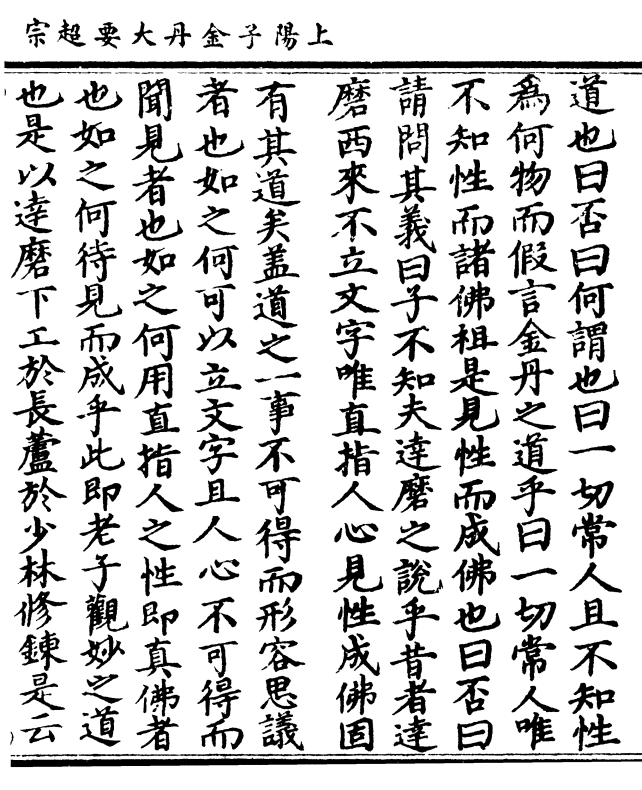 上陽子金丹大要超宗
道也曰否曰何謂也曰一切常人且不知性
為何物而假言金丹之道乎曰一切常人唯
不知性而諸佛祖是見性而成佛也曰否曰
請問其義曰子不知夫達磨之說乎昔者達
磨西來不立文字唯直指人心見性成佛固
有其道矣盖道之一事不可得而形容思議
者也如之何可以立文字且人心不可得而
聞見者也如之何用直指人之性即真佛者
也如之何待見而成乎此即老子觀妙之道
也是以達磨下工於長蘆於少林修鍊是云